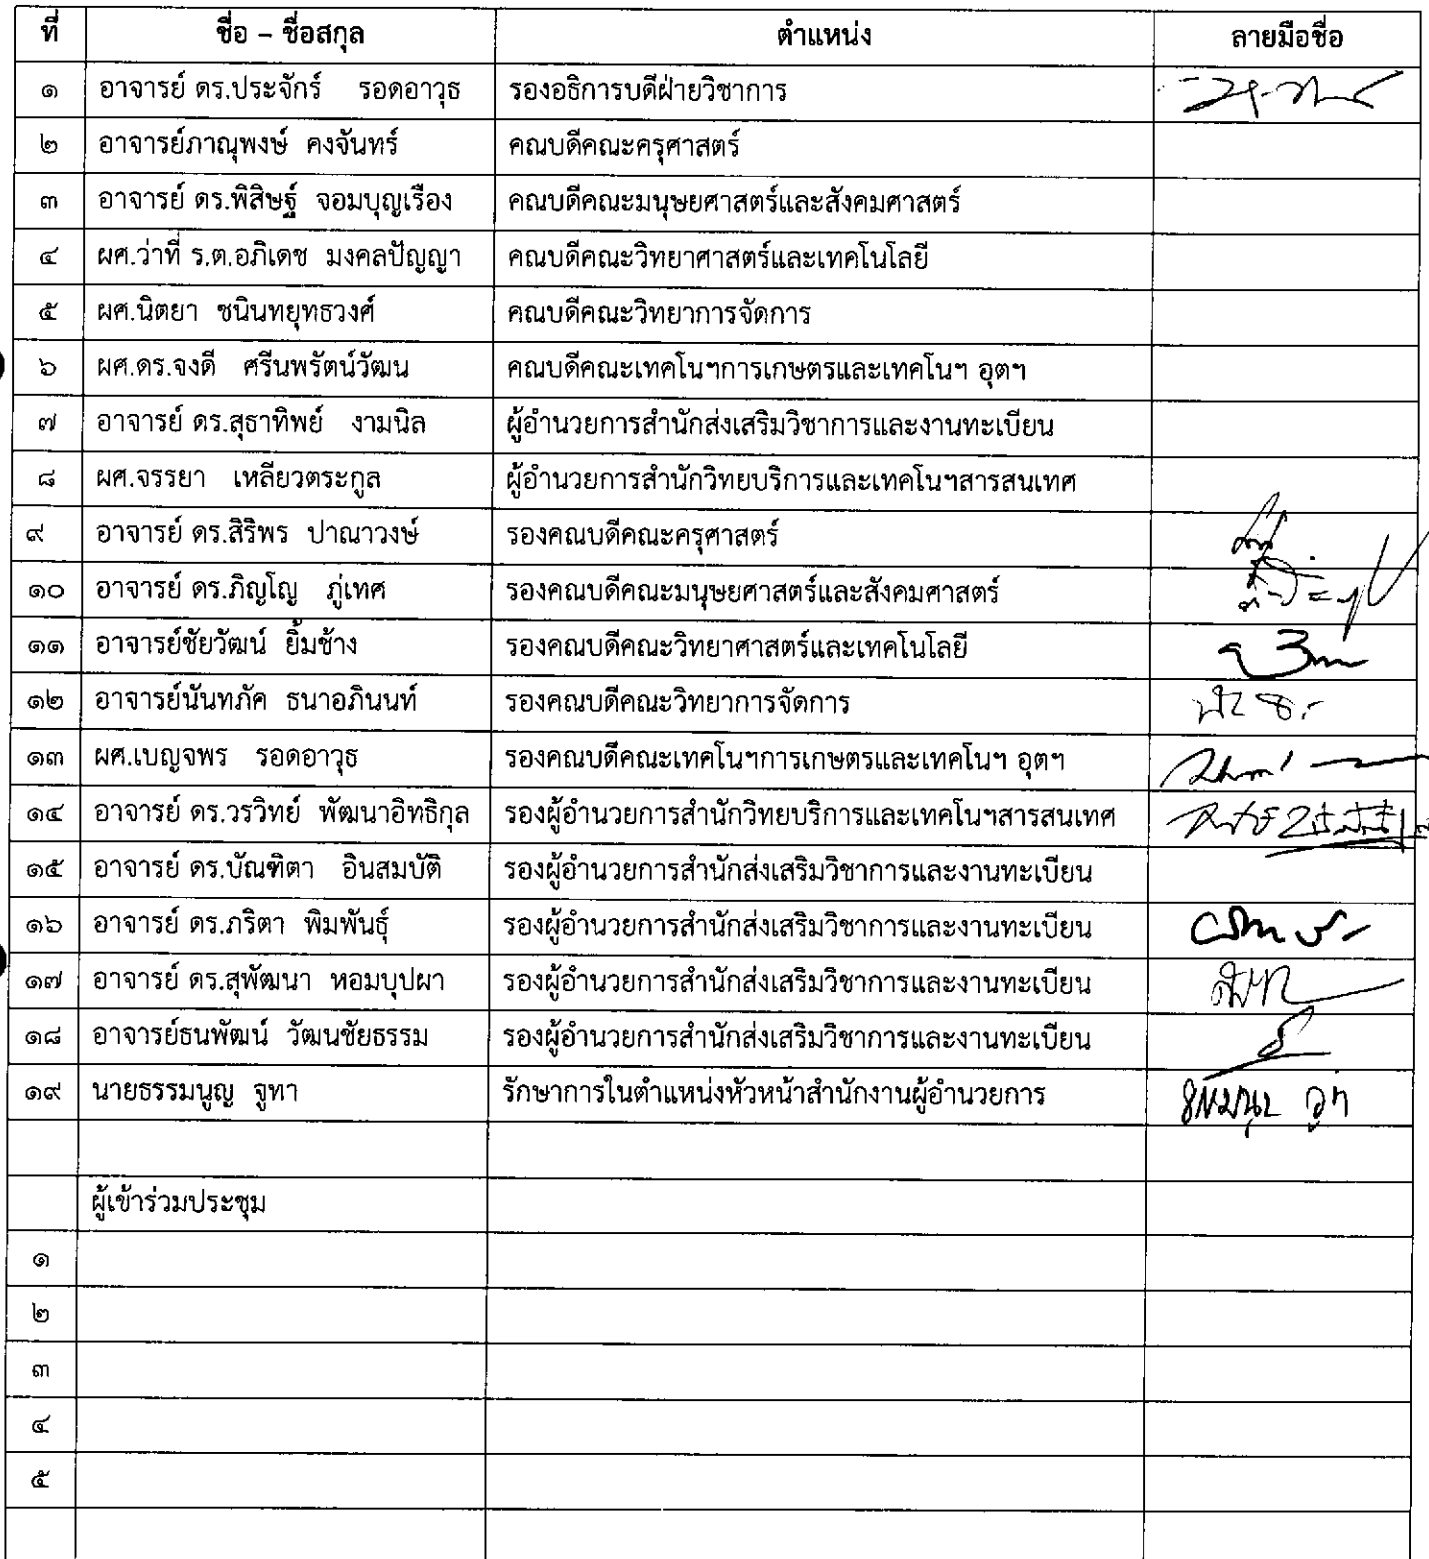 ที่ ชื่อ – ชื่อสกุล ตำแหน่ง ลายมือชื่อ
๑ อาจารย์ ดร.ประจักร์ รอดอาวุธ รองอธิการบดีฝ่ายวิชาการ
๒ อาจารย์ภาณุพงษ์ คงจันทร์ คณบดีคณะครุศาสตร์
๓ อาจารย์ ดร.พิสิษฐ์ จอมบุญเรือง คณบดีคณะมนุษยศาสตร์และสังคมศาสตร์
๔ ผศ.ว่าที่ ร.ต.อภิเดช มงคลปัญญา คณบดีคณะวิทยาศาสตร์และเทคโนโลยี
๕ ผศ.นิตยา ชนินทยุทธวงศ์ คณบดีคณะวิทยาการจัดการ
๖ ผศ.ดร.จงดี ศรีนพรัตน์วัฒน คณบดีคณะเทคโนฯการเกษตรและเทคโนฯ อุตฯ
๗ อาจารย์ ดร.สุธาทิพย์ งามนิล ผู้อำนวยการสำนักส่งเสริมวิชาการและงานทะเบียน
๘ ผศ.จรรยา เหลียวตระกูล ผู้อำนวยการสำนักวิทยบริการและเทคโนฯสารสนเทศ
๙ อาจารย์ ดร.สิริพร ปาณาวงษ์ รองคณบดีคณะครุศาสตร์
๑๐ อาจารย์ ดร.ภิญโญ ภู่เทศ รองคณบดีคณะมนุษยศาสตร์และสังคมศาสตร์
๑๑ อาจารย์ชัยวัฒน์ ยิ้มช้าง รองคณบดีคณะวิทยาศาสตร์และเทคโนโลยี
๑๒ อาจารย์นันทภัค ธนาอภินนท์ รองคณบดีคณะวิทยาการจัดการ
๑๓ ผศ.เบญจพร รอดอาวุธ รองคณบดีคณะเทคโนฯการเกษตรและเทคโนฯ อุตฯ
๑๔ อาจารย์ ดร.วรวิทย์ พัฒนาอิทธิกุล รองผู้อำนวยการสำนักวิทยบริการและเทคโนฯสารสนเทศ
๑๕ อาจารย์ ดร.บัณฑิตา อินสมบัติ รองผู้อำนวยการสำนักส่งเสริมวิชาการและงานทะเบียน
๑๖ อาจารย์ ดร.ภริตา พิมพันธุ์ รองผู้อำนวยการสำนักส่งเสริมวิชาการและงานทะเบียน
๑๗ อาจารย์ ดร.สุพัฒนา หอมบุปผา รองผู้อำนวยการสำนักส่งเสริมวิชาการและงานทะเบียน
๑๘ อาจารย์ธนพัฒน์ วัฒนชัยธรรม รองผู้อำนวยการสำนักส่งเสริมวิชาการและงานทะเบียน
๑๙ นายธรรมนูญ จูทา รักษาการในตำแหน่งหัวหน้าสำนักงานผู้อำนวยการ
ผู้เข้าร่วมประชุม
๑
๒
๓
๔
๕